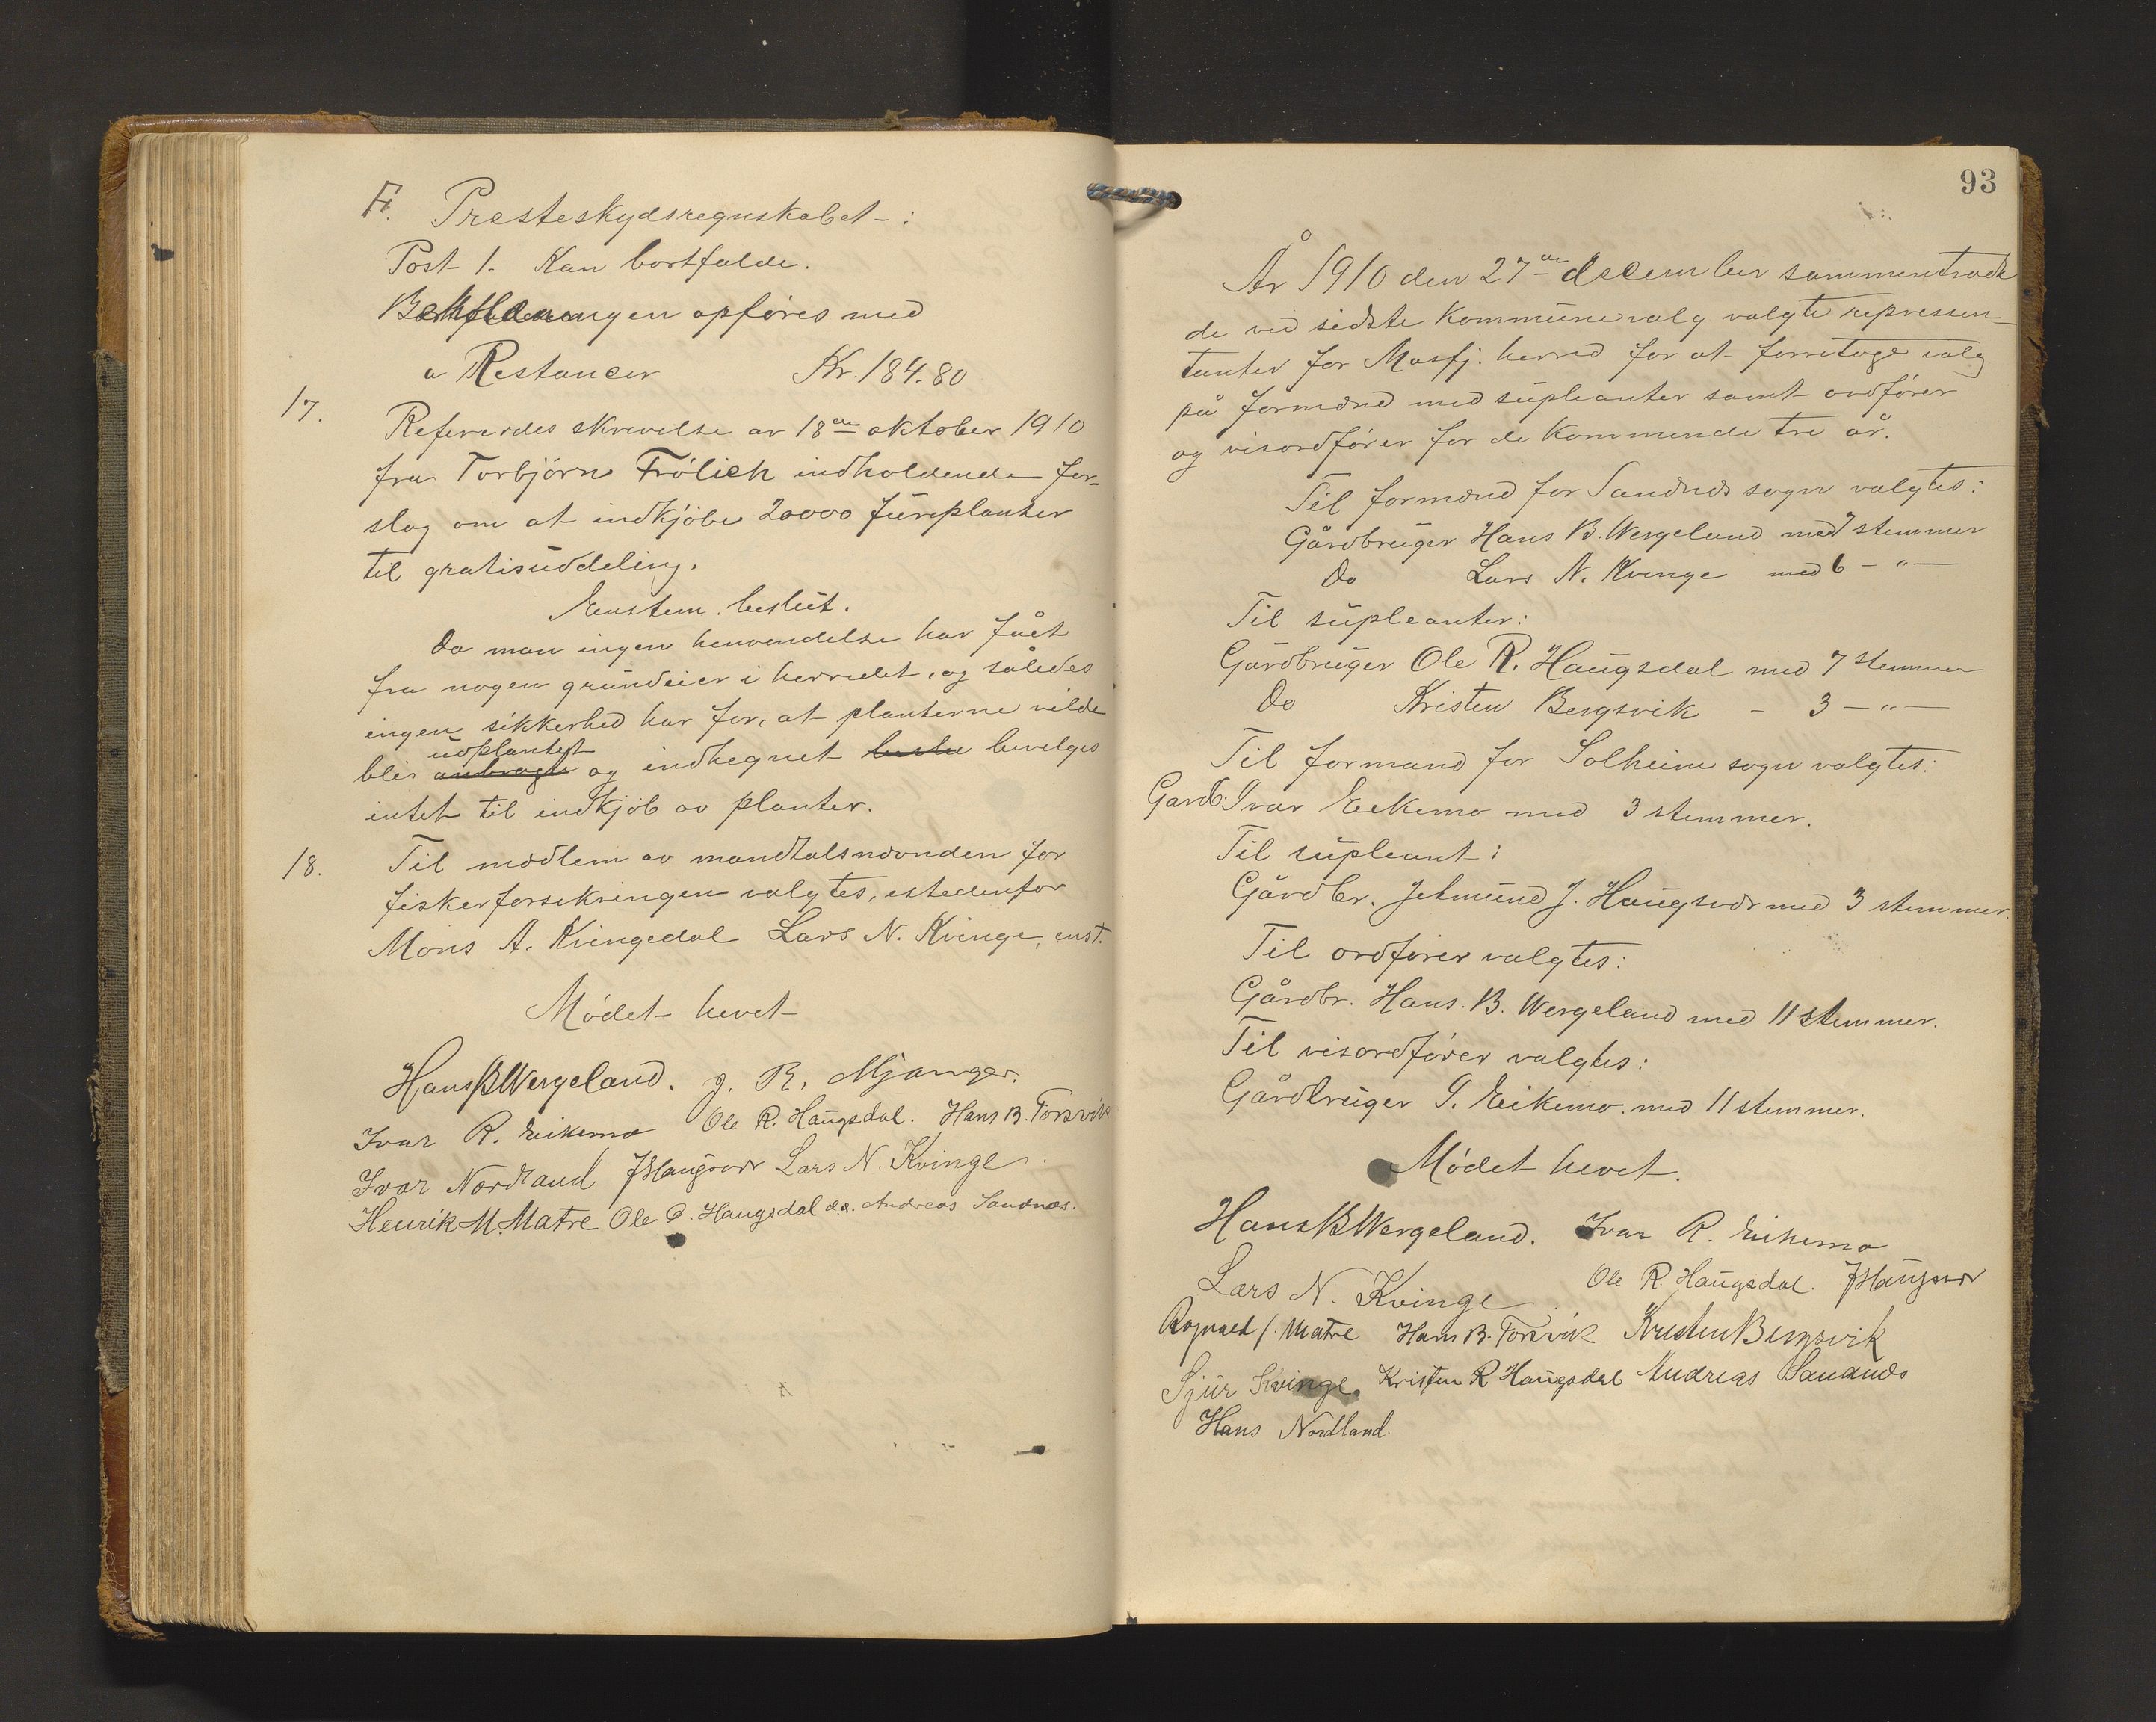 F. Presteskydsregnskabet:
Post 1. Kan bortfalde.
Beholdningen opføres med
a Restancer Kr. 184.80
17. Refererdes skrivelse av 18de oktober 1910
fra Torbjörn Frölich indholdende for-
slag om at indkjöbe 20000 füreplanter
til gratisuddeling.
Enstem. beslut.
Da man ingen henvendelse har fået
fra nogen grundeier i herredet, og således
ingen sikkerhed har for, at planterne vilde
udplantet
blir anbragte og indhegnet bevilges
intet til indkjöb av planter.
18. Til medlem av mandtalsnævnden for
fiskerforsikringen valgtes, istedenfor
Mons A. Kvingedal Lars N. Kvinge, enst.
Mödet hevet
Hans B Wergeland. J. R. Mjanger.
Ivar R. Eikemo Ole R. Haugsdal. Hans B. Torsvik
Ivar Nordland J Haugsvær Lars N. Kvinge.
Henrik M. Matre Ole O. Haugsdal d.e. Andreas Sandnæs.
93
År 1910 den 27de december sammentraadte
de ved sidste kommunevalg valgte repressen-
tanter for Masfj. herred for at forretage valg
på formænd med supleanter samt ordfører
og viseordfører for de kommende tre år.
Til formænd for Sandnæs sogn valgtes:
Gårdbruger Hans B. Wergeland med 7 stemmer
Do Lars N. Kvinge med 6 - " -
Til supleanter:
Gårdbruger Ole R. Haugsdal med 7 stemmer
Do Kristen Bergsvik - 3 - " -
Til formand for Solheim sogn valgtes:
Gardb. Ivar Eikemo med 3 stemmer.
Til supleant:
Gårdbr. Jetmund J. Haugsvær med 3 stemmer.
Til ordfører valgtes:
Gårdbr. Hans. B. Wergeland med 11 stemmer.
Til viseordfører valgtes:
Gårdbruger I. Eikemo. med 11 stemmer.
Mödet hevet.
Hans B Wergeland. Ivar R. Eikemo
Lars N. Kvinge Ole R. Haugsdal. J Haugsvær
Rognald J. Matre Hans B. Torsvik Kristen Bergsvik
Sjur Kvinge. Kristen R Haugsdal Andreas Sandnæs
Hans Nordland.